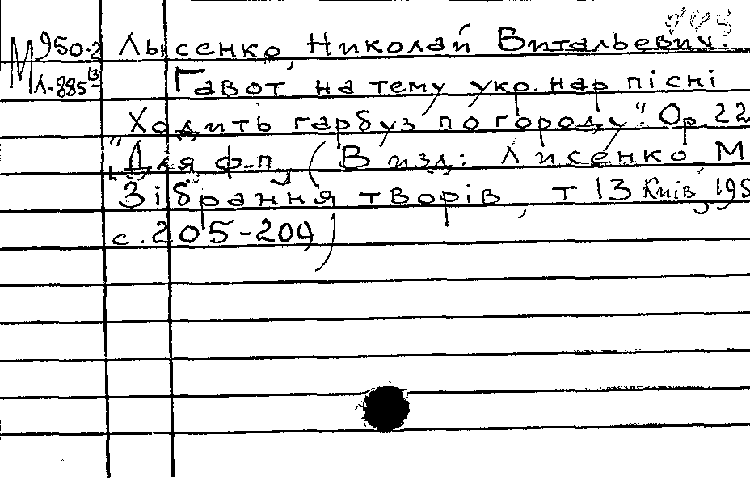 М 950-2
Л-885 13
Лысенко, Николай Витальевич.
Гавот на тему укр. нар пісні
"Ходить гарбуз по городу". Ор. 22
Для ф-п. (В изд: Лисенко М
Зібрання творів, т 13 Київ, 195
с. 205-209)